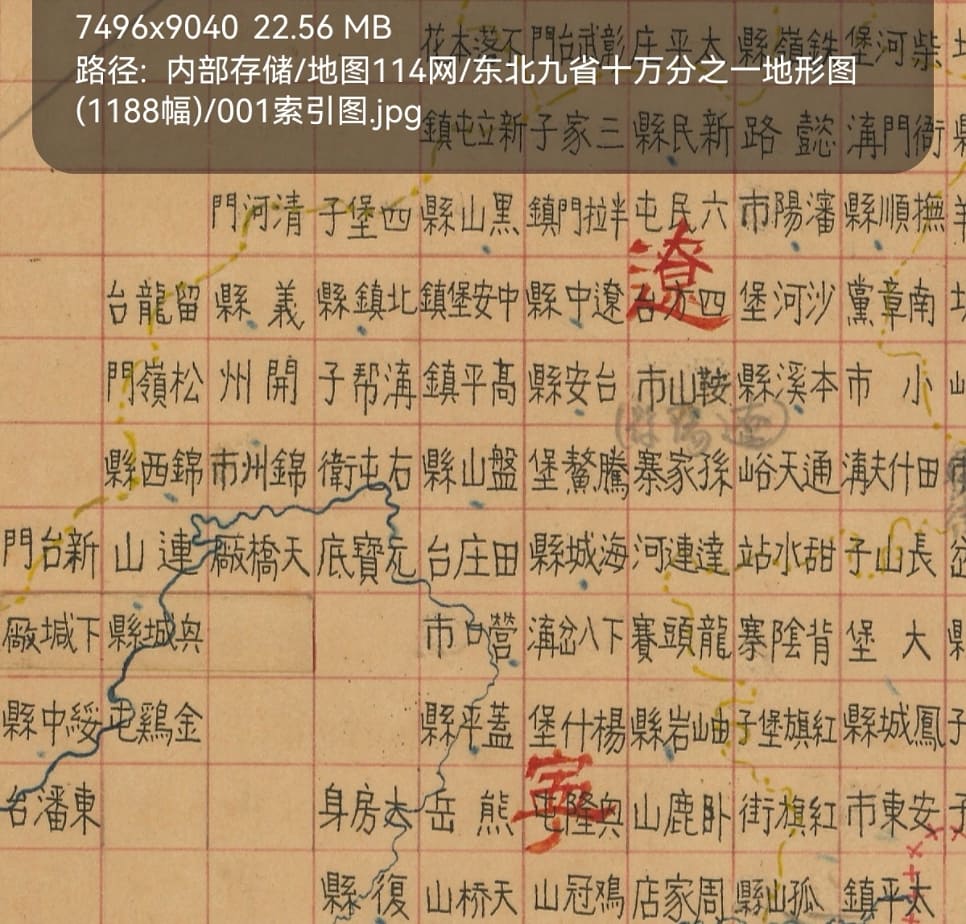 7496x9040 22.56 MB
路径: 内部存储/地图114网/东北九省十万分之一地形图
(1188幅)/001索引图.jpg
柴河堡 鉄嶺縣 太平庄 彰武台門 不落本花
衙門溝 懿路 新民縣 三家子 新立屯鎮
撫順縣 瀋陽市 六民屯 半拉門鎮 黑山縣 四堡子 清河門
遼
南章黨 沙河堡 四方台 遼中縣 中安堡鎮 北鎮縣 義縣 留龍台
小市 本溪縣 鞍山市 台安縣 高平鎮 溝帮子 開州 松嶺門
田什夫溝 通天峪 孫家寨 騰鰲堡 盤山縣 右屯衛 錦州市 錦西縣
長山子 甜水站 達連河 海城縣 田庄台 元寶底 天橋廠 連山 新台門
大堡 背陰寨 龍頭賽 下八岔溝 營口市 興城縣 下堿廠
鳳城縣 紅旗堡子 岫岩縣 楊什堡 蓋平縣 金鷄屯 綏中縣
寧
安東市 紅旗街 卧鹿山 興隆屯 熊岳 太房身 東潘台
太平鎮 孤山縣 周家店 鳮冠山 天桥山 復縣